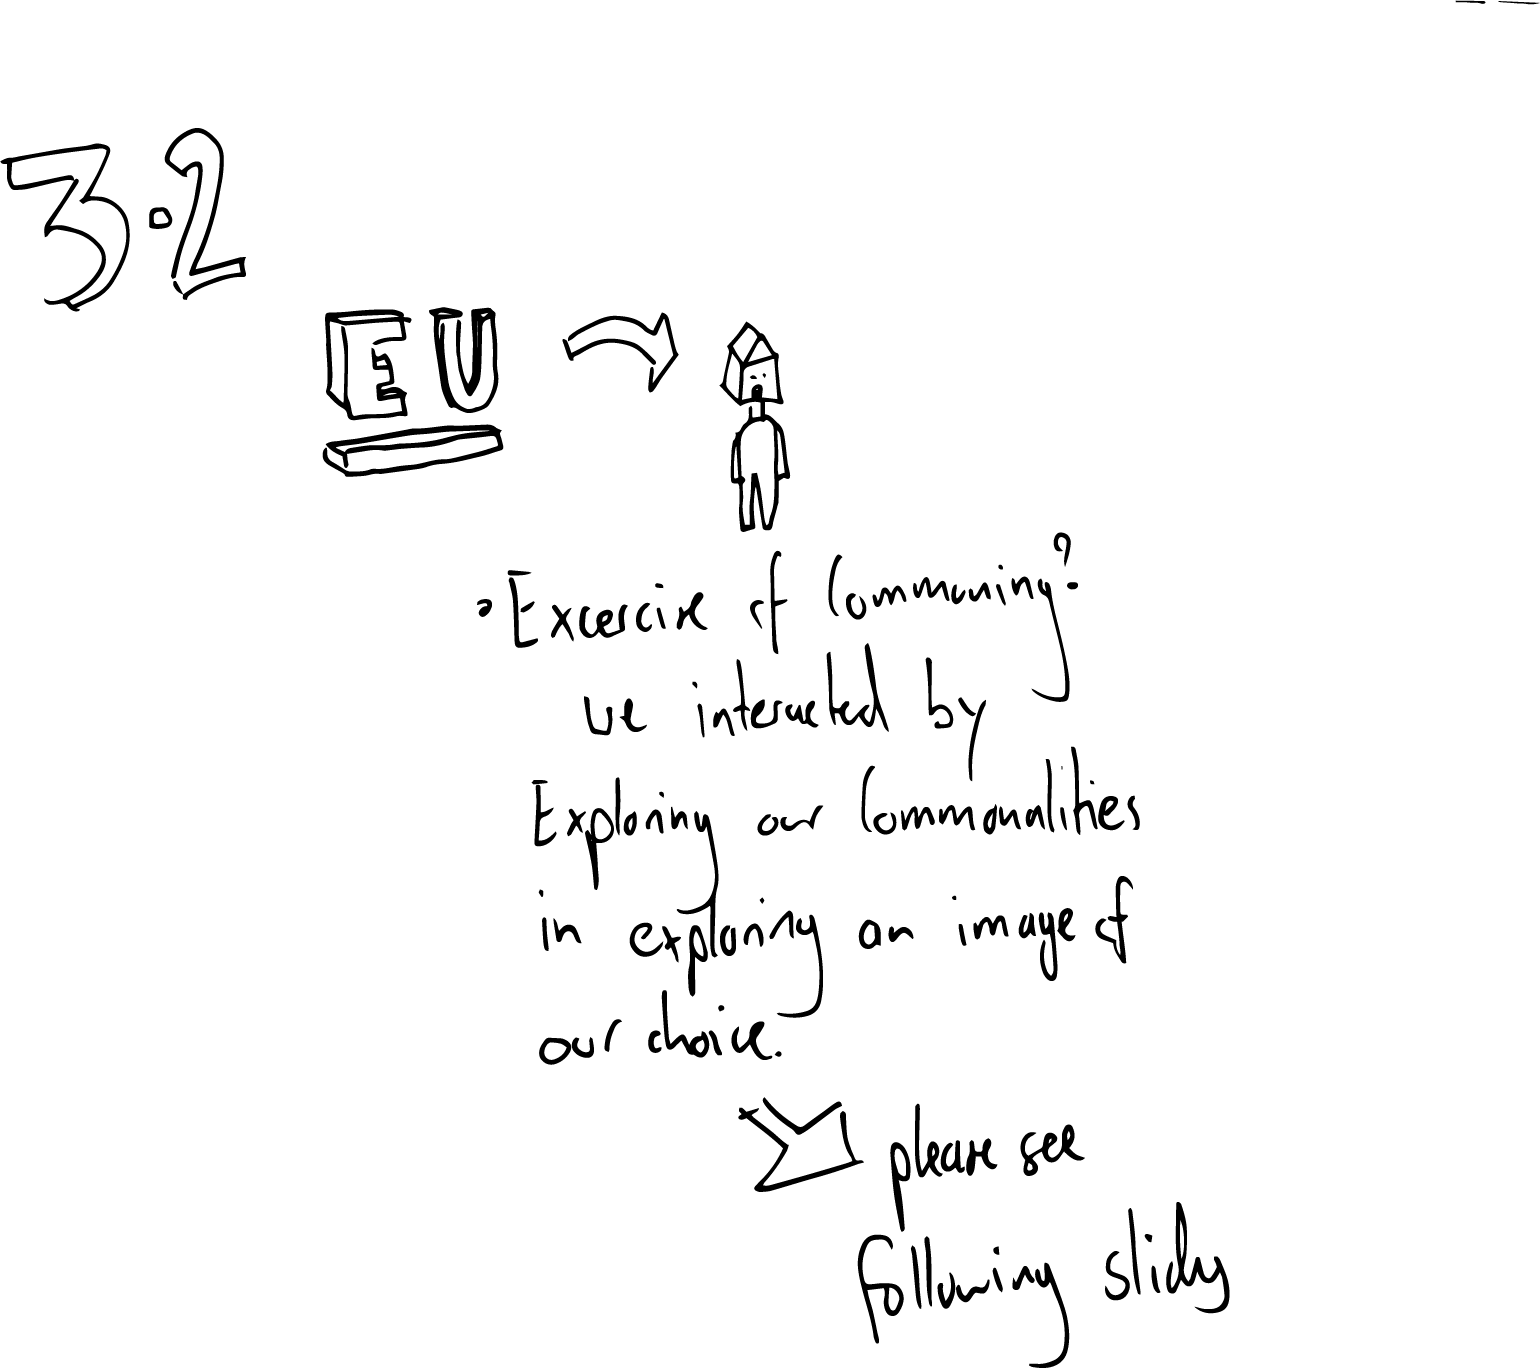 3.2
EU
• Excercise of Communing?
we interacted by
Exploring our Commonalities
in exploring an image of
our choice.
please see
following slides